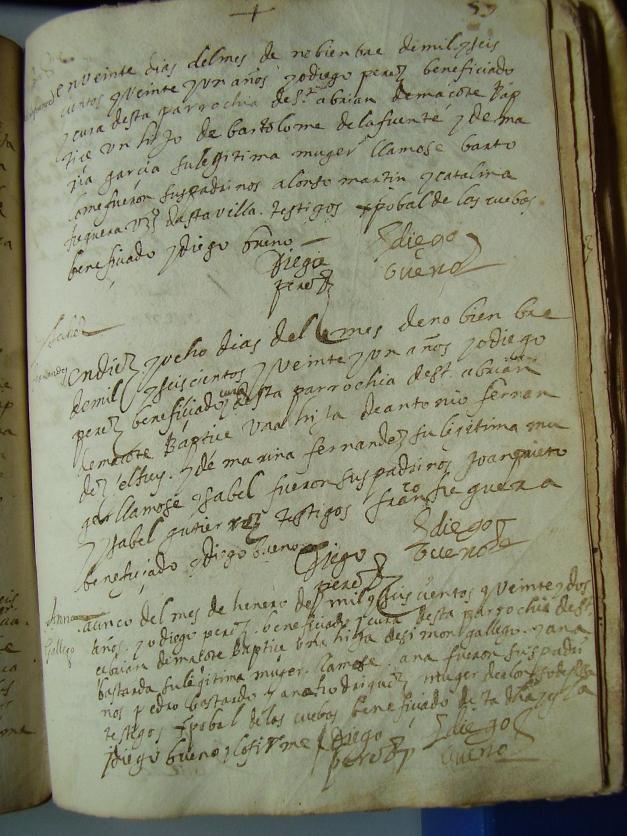 en veinte dias del mes de nobienbre de mil y seis
cientos y veinte y un años yo diego perez beneficiado
y cura desta parrochia de St abrian demacote Bap
tice un hijo de bartolome de la fuente y de ma
ria garcia su legitima muger llamose barto
lame fueron sus padrinos alonso martin y catalina
feguera vzs desta villa. testigos xpobal de las cuebas
beneficiado y diego bueno
Diego perez
diego bueno
Ysabel
fernandez
en diez y ocho dias del mes de nobienbre
de mil y seiscientos y veinte y un años yo diego
perez beneficiado y cura desta parrochia de St abrian
demacote Baptice una hija de antonio fernan
dez y de marina fernandez su legitima mu
ger llamose ysabel fueron sus padrinos Joan prieto
y ysabel gutierrez testigos franco feguera
beneficiado y diego bueno
Diego perez
diego bueno
Anna
Gallego
a cinco del mes de henero de mil y seiscientos y veinte y dos
años. yo diego perez beneficiado y cura desta parrochia de St
cabrian demacote Baptice una hija de simon gallego. y ana
bastarda su legitima muger. llamose ana fueron sus padri
nos pedro bastardo y ana Rodriguez muger de
testigos xpobal de las cuebas beneficiado de
y diego bueno y lo firme
Diego perez
diego bueno